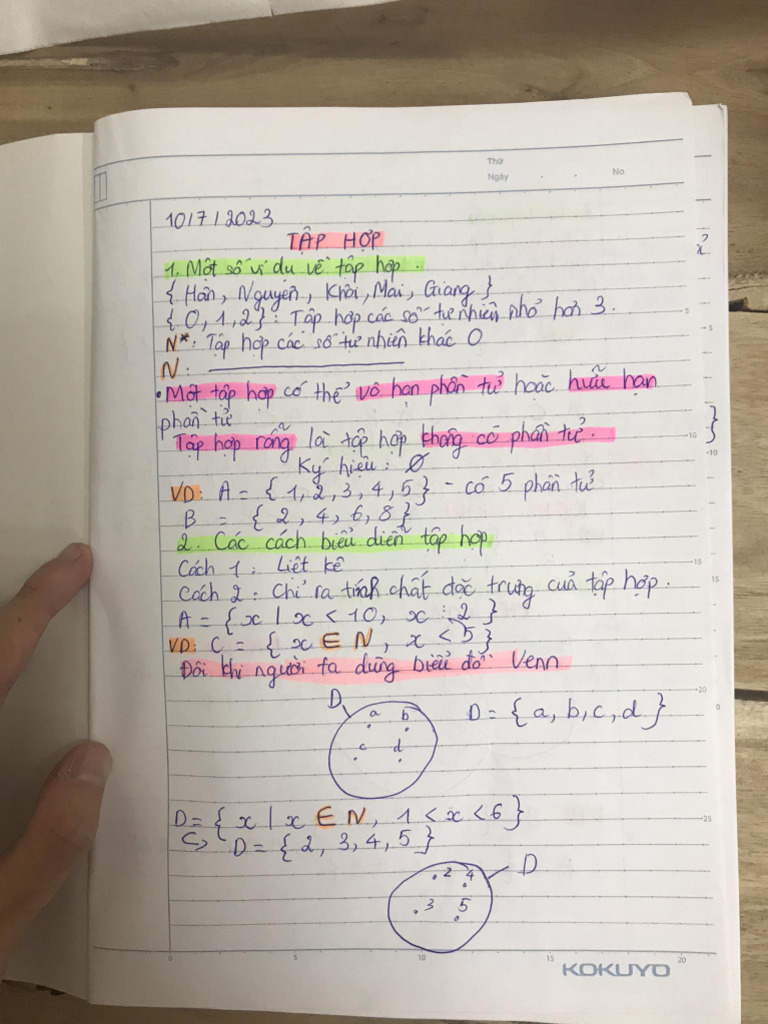 Thứ
Ngày . . No.
10/7/2023
TẬP HỢP
1. Một số ví dụ về tập hợp.
{ Hân, Nguyên, Khôi, Mai, Giang }
{ 0, 1, 2 } : Tập hợp các số tự nhiên nhỏ hơn 3.
N*: Tập hợp các số tự nhiên khác 0
N :
• Một tập hợp có thể vô hạn phần tử hoặc hữu hạn
phần tử
Tập hợp rỗng là tập hợp không có phần tử.
Ký hiệu : ∅
VD: A = { 1, 2, 3, 4, 5 } - có 5 phần tử
B = { 2, 4, 6, 8 }
2. Các cách biểu diễn tập hợp
Cách 1 : Liệt kê
Cách 2 : Chỉ ra tính chất đặc trưng của tập hợp.
A = { x | x < 10, x ⋮ 2 }
VD: C = { x ∈ N, x < 5 }
Đôi khi người ta dùng biểu đồ Venn
D
a b
c d
D = { a, b, c, d }
D = { x | x ∈ N, 1 < x < 6 }
D = { 2, 3, 4, 5 }
D
2 4
3 5
KOKUYO
0 5 10 15 20